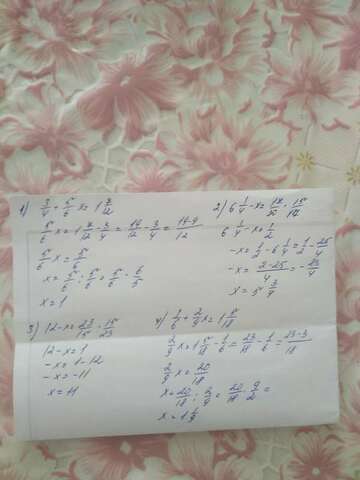 1) 3/4 + 5/6 x = 1 7/12
5/6 x = 1 7/12 - 3/4 = 19/12 - 3/4 = 19-9/12
5/6 x = 5/6
x = 5/6 : 5/6 = 5/6 · 6/5
x = 1
2) 6 1/4 - x = 17/30 · 15/17
6 1/4 - x = 1/2
-x = 1/2 - 6 1/4 = 1/2 - 25/4
-x = 2-25/4 = -23/4
x = 5 3/4
3) 12 - x = 23/15 · 15/23
12 - x = 1
-x = 1 - 12
-x = -11
x = 11
4) 1/6 + 2/9 x = 1 5/18
2/9 x = 1 5/18 - 1/6 = 23/18 - 1/6 = 23-3/18
2/9 x = 20/18
x = 20/18 : 2/9 = 20/18 · 9/2 =